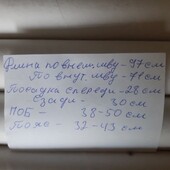 Длина по внеш. шву - 97 см
По внут. шву - 71 см
Посадка спереди - 28 см
Сзади - 30 см
ПОБ - 38-50 см
Пояс - 32-43 см